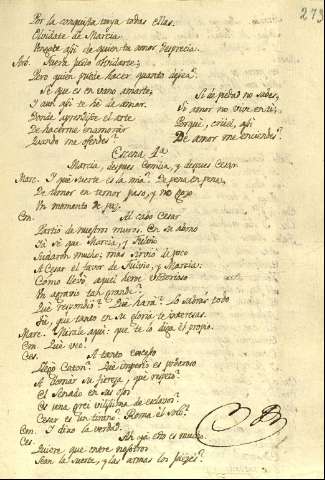 273
Por la conquista tuya todas ellas.
Olvidate de Marcia
Vengate asi de quien tu amor desprecia.
Arb. Fuera justo olvidarte;
Pero quien puede hacer quanto desea?
Sé que es en vano amarte,
Y aun asi te hé de amar.
Donde aprendiste el arte
De hacerme enamorar
Quando me ofendes?
Si de piedad no sabes,
Si amor no vive en ti,
Porqué, cruel, asi
De amor me enciendes?
Escena 4ª
Marcia, despues Emilia, y despues Cesar.
Marc. Y qué suerte es la mia? De pena en pena,
De temor en temor paso, y no gozo
Un momento de paz.
Em. Al cabo Cesar
Partió de nuestros muros. En su abono
Sé que Marcia, y Fulvio
Sudaron mucho; mas sirvió de poco
A Cesar el favor de Fulvio, y Marcia.
Como llevó aquel Heroe victorioso
Un agravio tan grande?
Qué respondió? Qué hará? Lo sabrás todo
Tú, que tanto en su gloria te interesas.
Marc. Mirale aqui: que te lo diga el propio.
Em. Qué veo!
Ces. A tanto exceso
Llegó Catón? Qué imperio es poderoso
A domar su fiereza, que respeto?
El Senado en sus ojos
Es una grei vilisima de esclavos?
Cesar es un tirano? Roma él solo?
Em. Y dixo la verdad.
Ces. Ah yá esto es mucho.
Quiere que entre nosotros
Sean la suerte, y las armas los juezes?